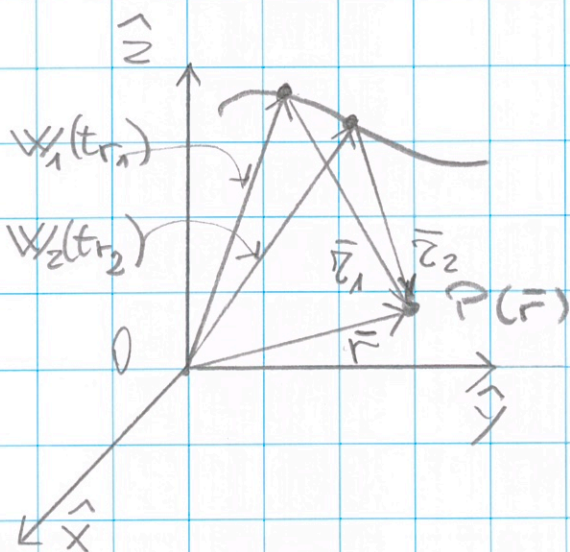 ẑ
W₁(tr₁)
W₂(tr₂)
r̄₁
r̄₂
P(r̄)
r̄
0
ŷ
x̂